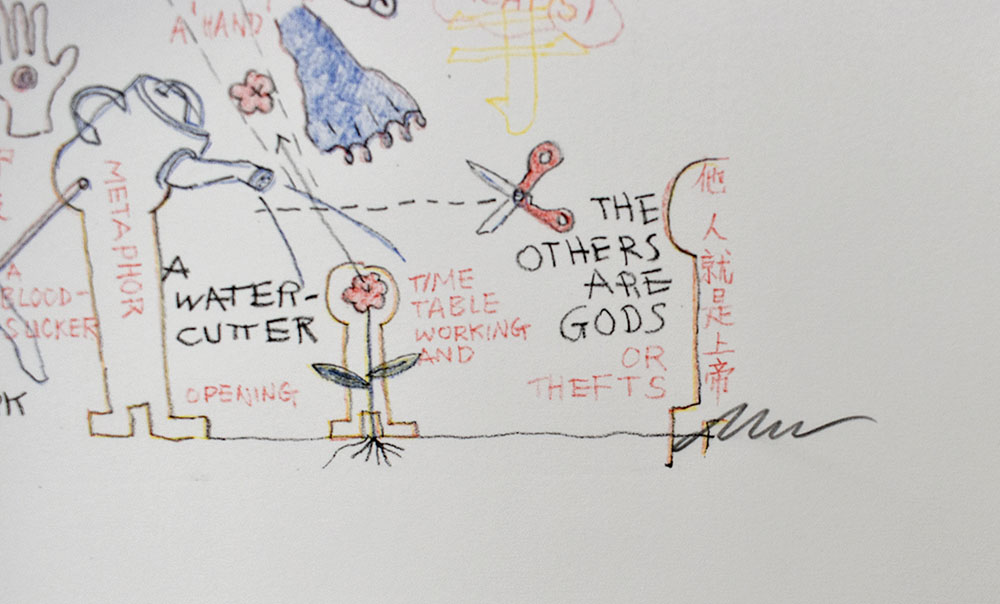 A 'HAND'
METAPHOR
A
BLOOD-
SUCKER
A
WATER-
CUTTER
OPENING
TIME
TABLE
WORKING
AND
THE
OTHERS
ARE
GODS
OR
THEFTS
他人就是上帝